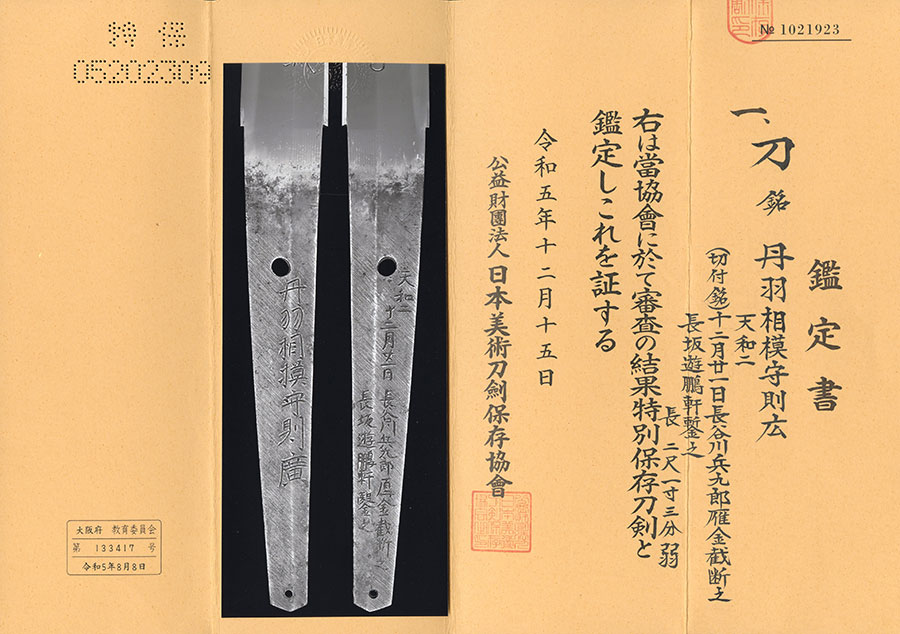 № 1021923
鑑定書
一、刀 銘 丹羽相模守則広
(切付銘)
天和二
十二月廿一日長谷川兵九郎雁金截断之
長坂遊鵬軒鏨之
長 二尺一寸三分弱
右は當協會に於て審査の結果特別保存刀剣と
鑑定しこれを証する
令和五年十二月十五日
公益財團法人 日本美術刀劍保存協會
天和二
十二月廿一日 長谷川兵九郎雁金截断之
長坂遊鵬軒鏨之
丹羽相模守則廣
特保
05202309
大阪府 教育委員会
第 133417 号
令和5年8月8日